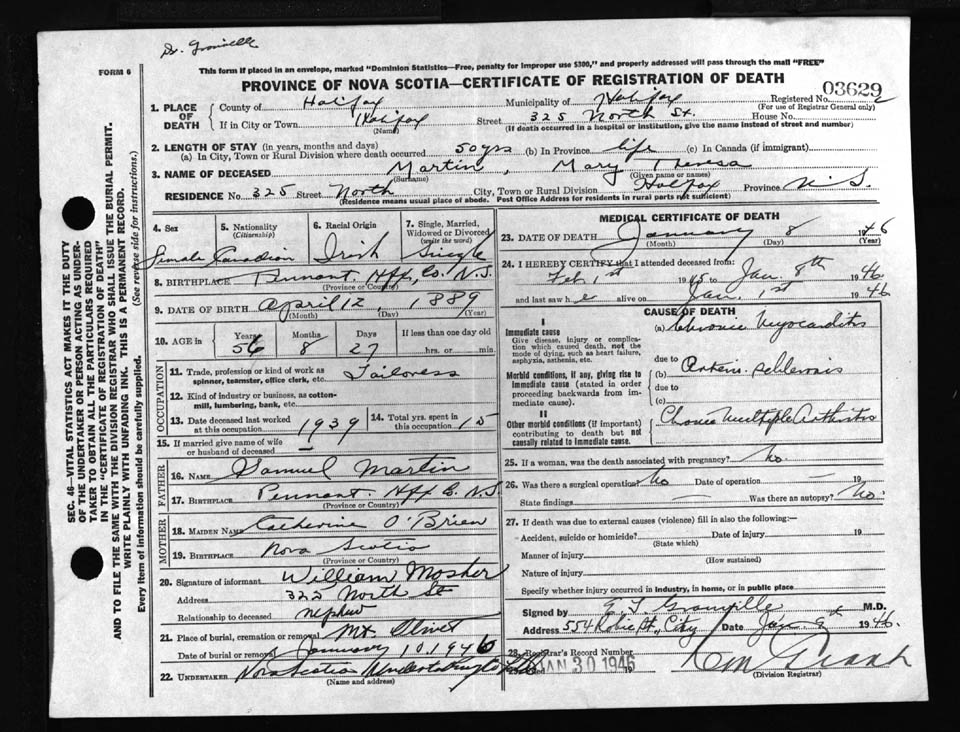 Dr. Granville
FORM 6
This form if placed in an envelope, marked "Dominion Statistics—Free, penalty for improper use $300," and properly addressed will pass through the mail "FREE"
PROVINCE OF NOVA SCOTIA—CERTIFICATE OF REGISTRATION OF DEATH
Registered No. 03629
(For use of Registrar General only)
1. PLACE OF DEATH
County of Halifax
Municipality of Halifax
If in City or Town Halifax
(Name)
Street 325 North St. House No.
(If death occurred in a hospital or institution, give the name instead of street and number)
2. LENGTH OF STAY (in years, months and days)
(a) In City, Town or Rural Division where death occurred 50 yrs (b) In Province life (c) In Canada (if immigrant)
3. NAME OF DECEASED Martin, Mary Theresa
(Surname) (Given name or names)
RESIDENCE No. 325 Street North City, Town or Rural Division Halifax Province N.S.
(Residence means usual place of abode. Post Office Address for residents in rural parts not sufficient)
4. Sex
Female
5. Nationality
(Citizenship)
Canadian
6. Racial Origin
Irish
7. Single, Married, Widowed or Divorced
(write the word)
Single
8. BIRTHPLACE Pennant. Hfx. Co. N.S.
(Province or Country)
9. DATE OF BIRTH April 12, 1889
(Month) (Day) (Year)
10. AGE in
Years 56
Months 8
Days 27
If less than one day old
hrs. or min.
OCCUPATION
11. Trade, profession or kind of work as spinner, teamster, office clerk, etc. Tailoress
12. Kind of industry or business, as cotton-mill, lumbering, bank, etc.
13. Date deceased last worked at this occupation 1939
14. Total yrs. spent in this occupation 15
15. If married give name of wife or husband of deceased —
FATHER
16. NAME Samuel Martin
17. BIRTHPLACE Pennant. Hfx Co. N.S.
(Province or Country)
MOTHER
18. MAIDEN NAME Catherine O'Brien
19. BIRTHPLACE Nova Scotia
(Province or Country)
20. Signature of informant William Mosher
Address 325 North St
Relationship to deceased nephew
21. Place of burial, cremation or removal Mt. Olivet
Date of burial or removal January 10. 1946
22. UNDERTAKER Nova Scotia Undertaking Co
(Name and address)
MEDICAL CERTIFICATE OF DEATH
23. DATE OF DEATH January 8 1946
(Month) (Day) (Year)
24. I HEREBY CERTIFY that I attended deceased from:
Feb 1st 1945 to Jan. 8th 1946
and last saw h e alive on Jan. 1st 1946
CAUSE OF DEATH
I
Immediate cause
Give disease, injury or complication which caused death, not the mode of dying, such as heart failure, asphyxia, asthenia, etc.
(a) Chronic Myocarditis
due to
Morbid conditions, if any, giving rise to immediate cause (stated in order proceeding backwards from immediate cause).
(b) Arterio-sclerosis
due to
(c)
II
Other morbid conditions (if important) contributing to death but not causally related to immediate cause.
Chronic multiple Arthritis
25. If a woman, was the death associated with pregnancy? No.
26. Was there a surgical operation? No Date of operation — 19
State findings — Was there an autopsy? No
27. If death was due to external causes (violence) fill in also the following:—
Accident, suicide or homicide? Date of injury 19
(State which)
Manner of injury
(How sustained)
Nature of injury
Specify whether injury occurred in industry, in home, or in public place
Signed by E. F. Granville M.D.
Address 554 Robie St., City Date Jan 9th 1946.
28. Registrar's Record Number
JAN 30 1946
(Division Registrar)
SEC. 46—VITAL STATISTICS ACT MAKES IT THE DUTY OF THE UNDERTAKER OR PERSON ACTING AS UNDERTAKER TO OBTAIN ALL THE PARTICULARS REQUIRED IN THE "CERTIFICATE OF REGISTRATION OF DEATH" AND TO FILE THE SAME WITH THE DIVISION REGISTRAR WHO SHALL ISSUE THE BURIAL PERMIT.
WRITE PLAINLY WITH UNFADING INK. THIS IS A PERMANENT RECORD.
Every item of information should be carefully supplied. (See reverse side for instructions.)